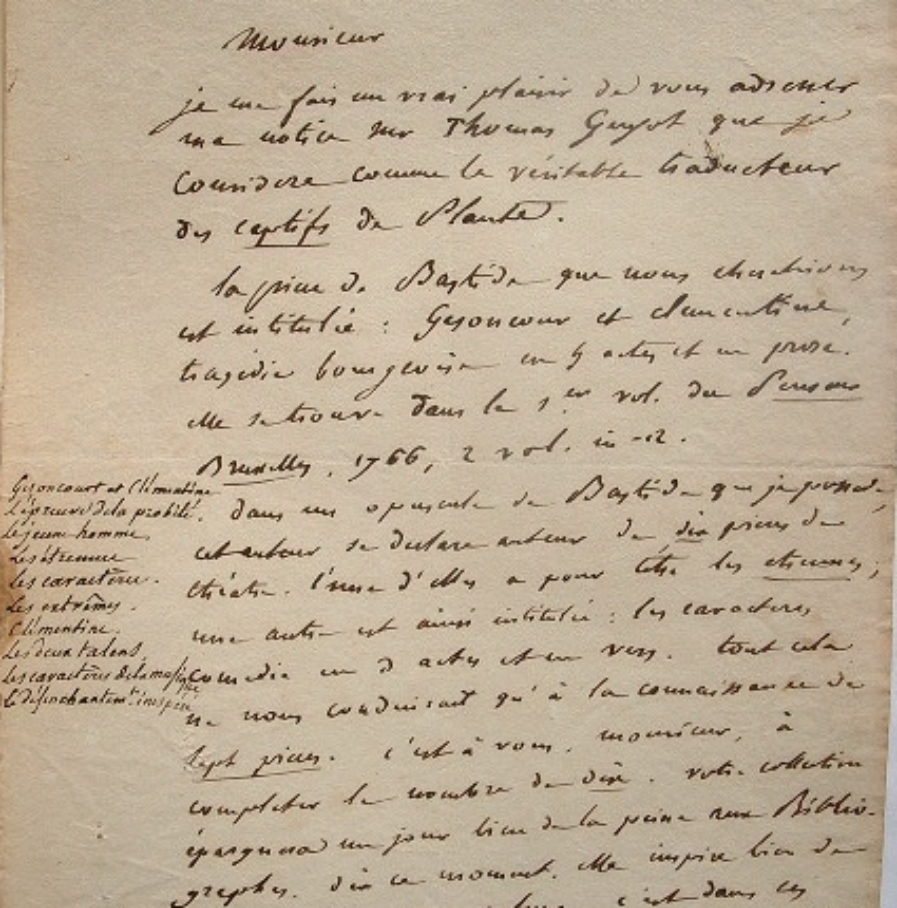 Monsieur
je me fais un vrai plaisir de vous adresser
ma notice sur Thomas Guyot que je
considere comme le véritable traducteur
des captifs de Plaute.
la piece de Bastide que nous cherchions
est intitulée : Gesoncour et clementine,
tragédie bourgeoise en 5 actes et en prose.
elle se trouve dans le 1er vol. du Penseur
Bruxelles, 1766, 2 vol. in-12.
dans un opuscule de Bastide que je possede,
cet auteur se declare auteur de dix pieces de
théatre. l'une d'elles a pour titre les etrennes;
une autre est ainsi intitulée : les caracteres
comedie en 3 actes et en vers. tout cela
ne nous conduisait qu'à la connaissance de
sept pieces. c'est à vous, monsieur, à
completer le nombre de dix. votre collection
épargnera un jour bien de la peine aux Biblio-
graphes. dès ce moment, elle inspire bien de
c'est dans ces
Gesoncourt et Clémentine
L'épreuve de la probité.
Le jeune homme.
Les étrennes
Les caractères.
Les extrêmes.
Clémentine.
Les deux talens.
Les caractères de la musique
Le désenchantemt. inespéré